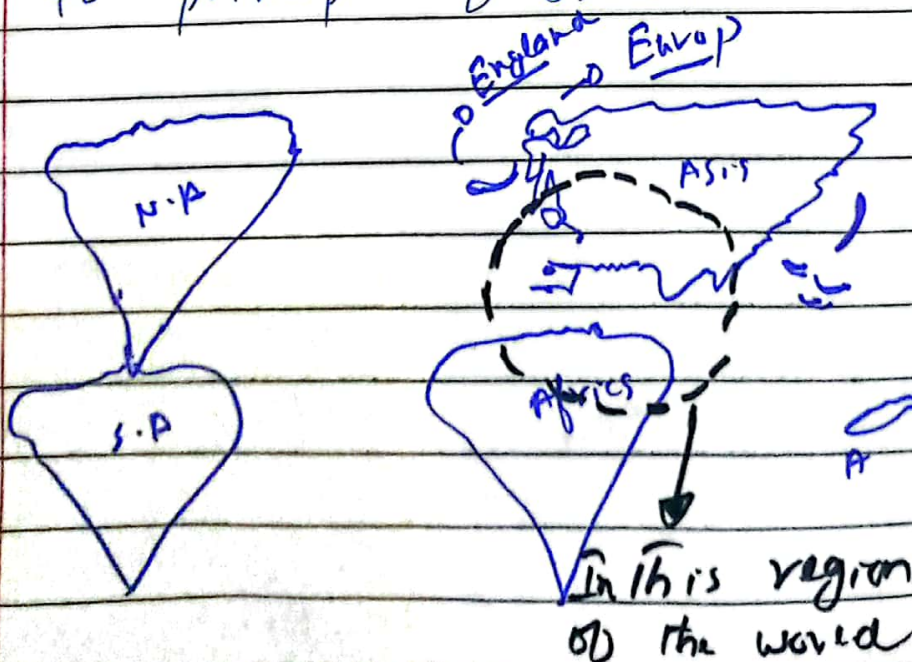 England
Europ
N.A
Asis
S.A
Africs
A
In This region
of the world